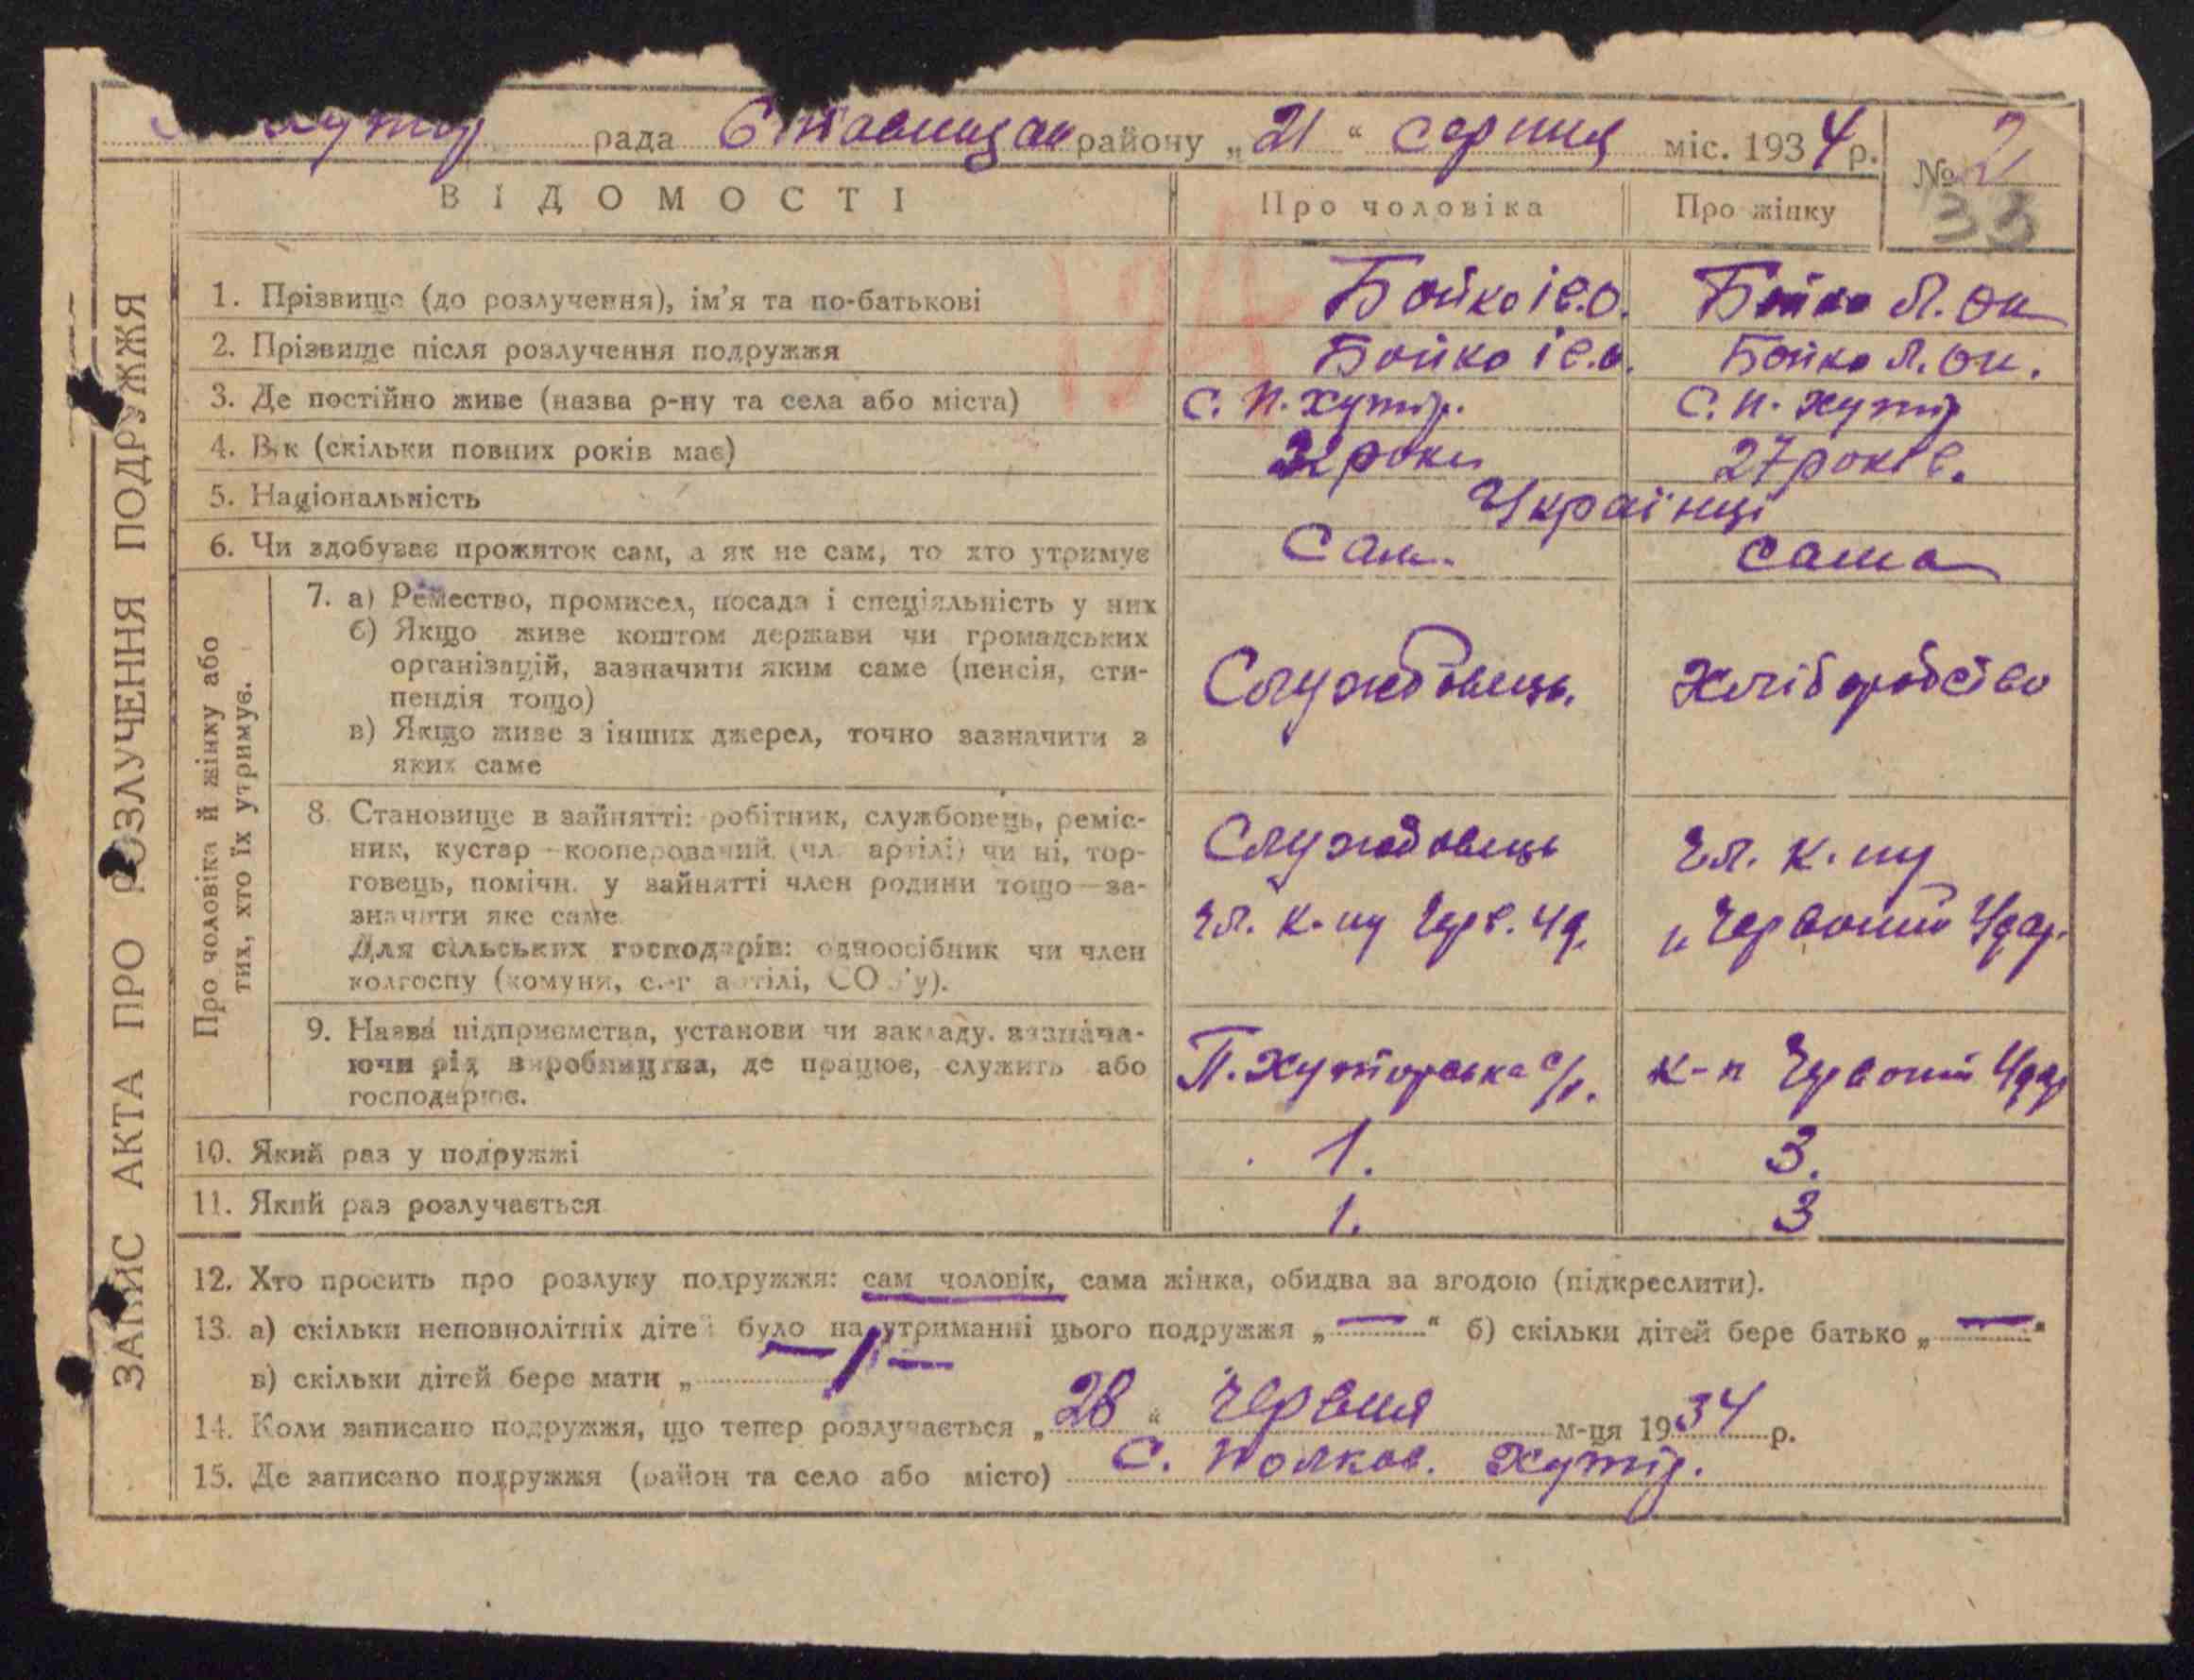 рада Ставищан району „21“ серпня міс. 1934 р.
№ 2
33
ВІДОМОСТІ
Про чоловіка
Про жінку
194
1. Прізвище (до розлучення), ім'я та по-батькові
Бойко Ів. О.
Бойко Л. Он
2. Прізвище після розлучення подружжя
Бойко Ів. О.
Бойко Л. Он.
3. Де постійно живе (назва р-ну та села або міста)
С. П. Хутір.
С. П. Хутір
4. Вік (скільки повних років має)
32 роки
27 років.
5. Національність
Українці
6. Чи здобуває прожиток сам, а як не сам, то хто утримує
Сам.
сама
ЗАПИС АКТА ПРО РОЗЛУЧЕННЯ ПОДРУЖЖЯ
Про чоловіка й жінку або
тих, хто їх утримує.
7. а) Ремество, промисел, посада і спеціяльність у них
б) Якщо живе коштом держави чи громадських
організацій, зазначити яким саме (пенсія, сти-
пендія тощо)
в) Якщо живе з інших джерел, точно зазначити з
яких саме
Службовець.
Хліборобство
8. Становище в зайнятті: робітник, службовець, реміс-
ник, кустар—кооперований (чл. артілі) чи ні, тор-
говець, помічн. у зайнятті член родини тощо—за-
значити яке саме
Для сільських господарів: одноосібник чи член
колгоспу (комуни, с.-г артілі, СОЗ'у).
Службовець
Чл. к-пу Черв. Уд.
Чл. к-пу
„Червоний Удар.
9. Назва підприємства, установи чи закладу, зазнача-
ючи рід виробництва, де працює, служить або
господарює.
П. Хуторська с/р.
к-п Червоний Удар
10. Який раз у подружжі
1.
3.
11. Який раз розлучається
1.
3
12. Хто просить про розлуку подружжя: сам чоловік, сама жінка, обидва за згодою (підкреслити).
13. а) скільки неповнолітніх дітей було на утриманні цього подружжя „—“ б) скільки дітей бере батько „—“
в) скільки дітей бере мати „
14. Коли записано подружжя, що тепер розлучається „28“ Червня м-ця 1934 р.
15. Де записано подружжя (район та село або місто) С. Полков. Хутір.